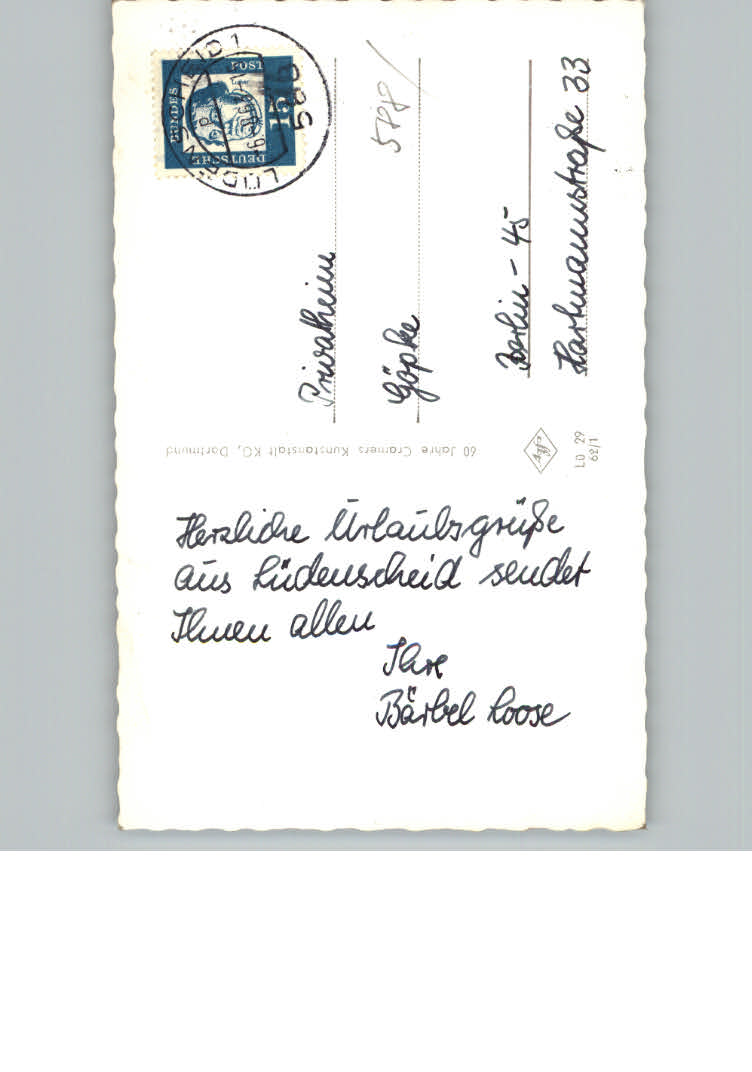 Herzliche Urlaubsgrüße
aus Lüdenscheid sendet
Ihnen allen
Ihre
Bärbel Loose
Privatheim
Göpke
Berlin - 45
Hartmannstraße 33
60 Jahre Cramers Kunstanstalt KG, Dortmund
Agfa
LÜ 29
62/1
DEUTSCHE
BUNDES
POST
15
LÜDENSCHEID 1
588